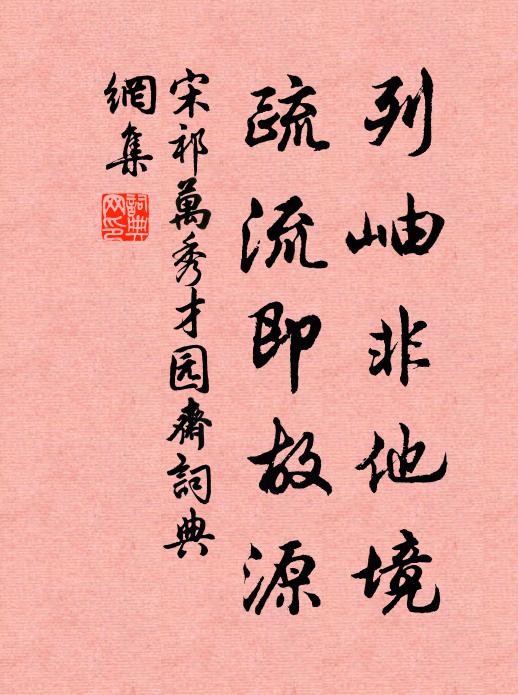 列岫非他境
疏流即故源
宋祁萬秀才园齋詞典
網集
詞典
网印